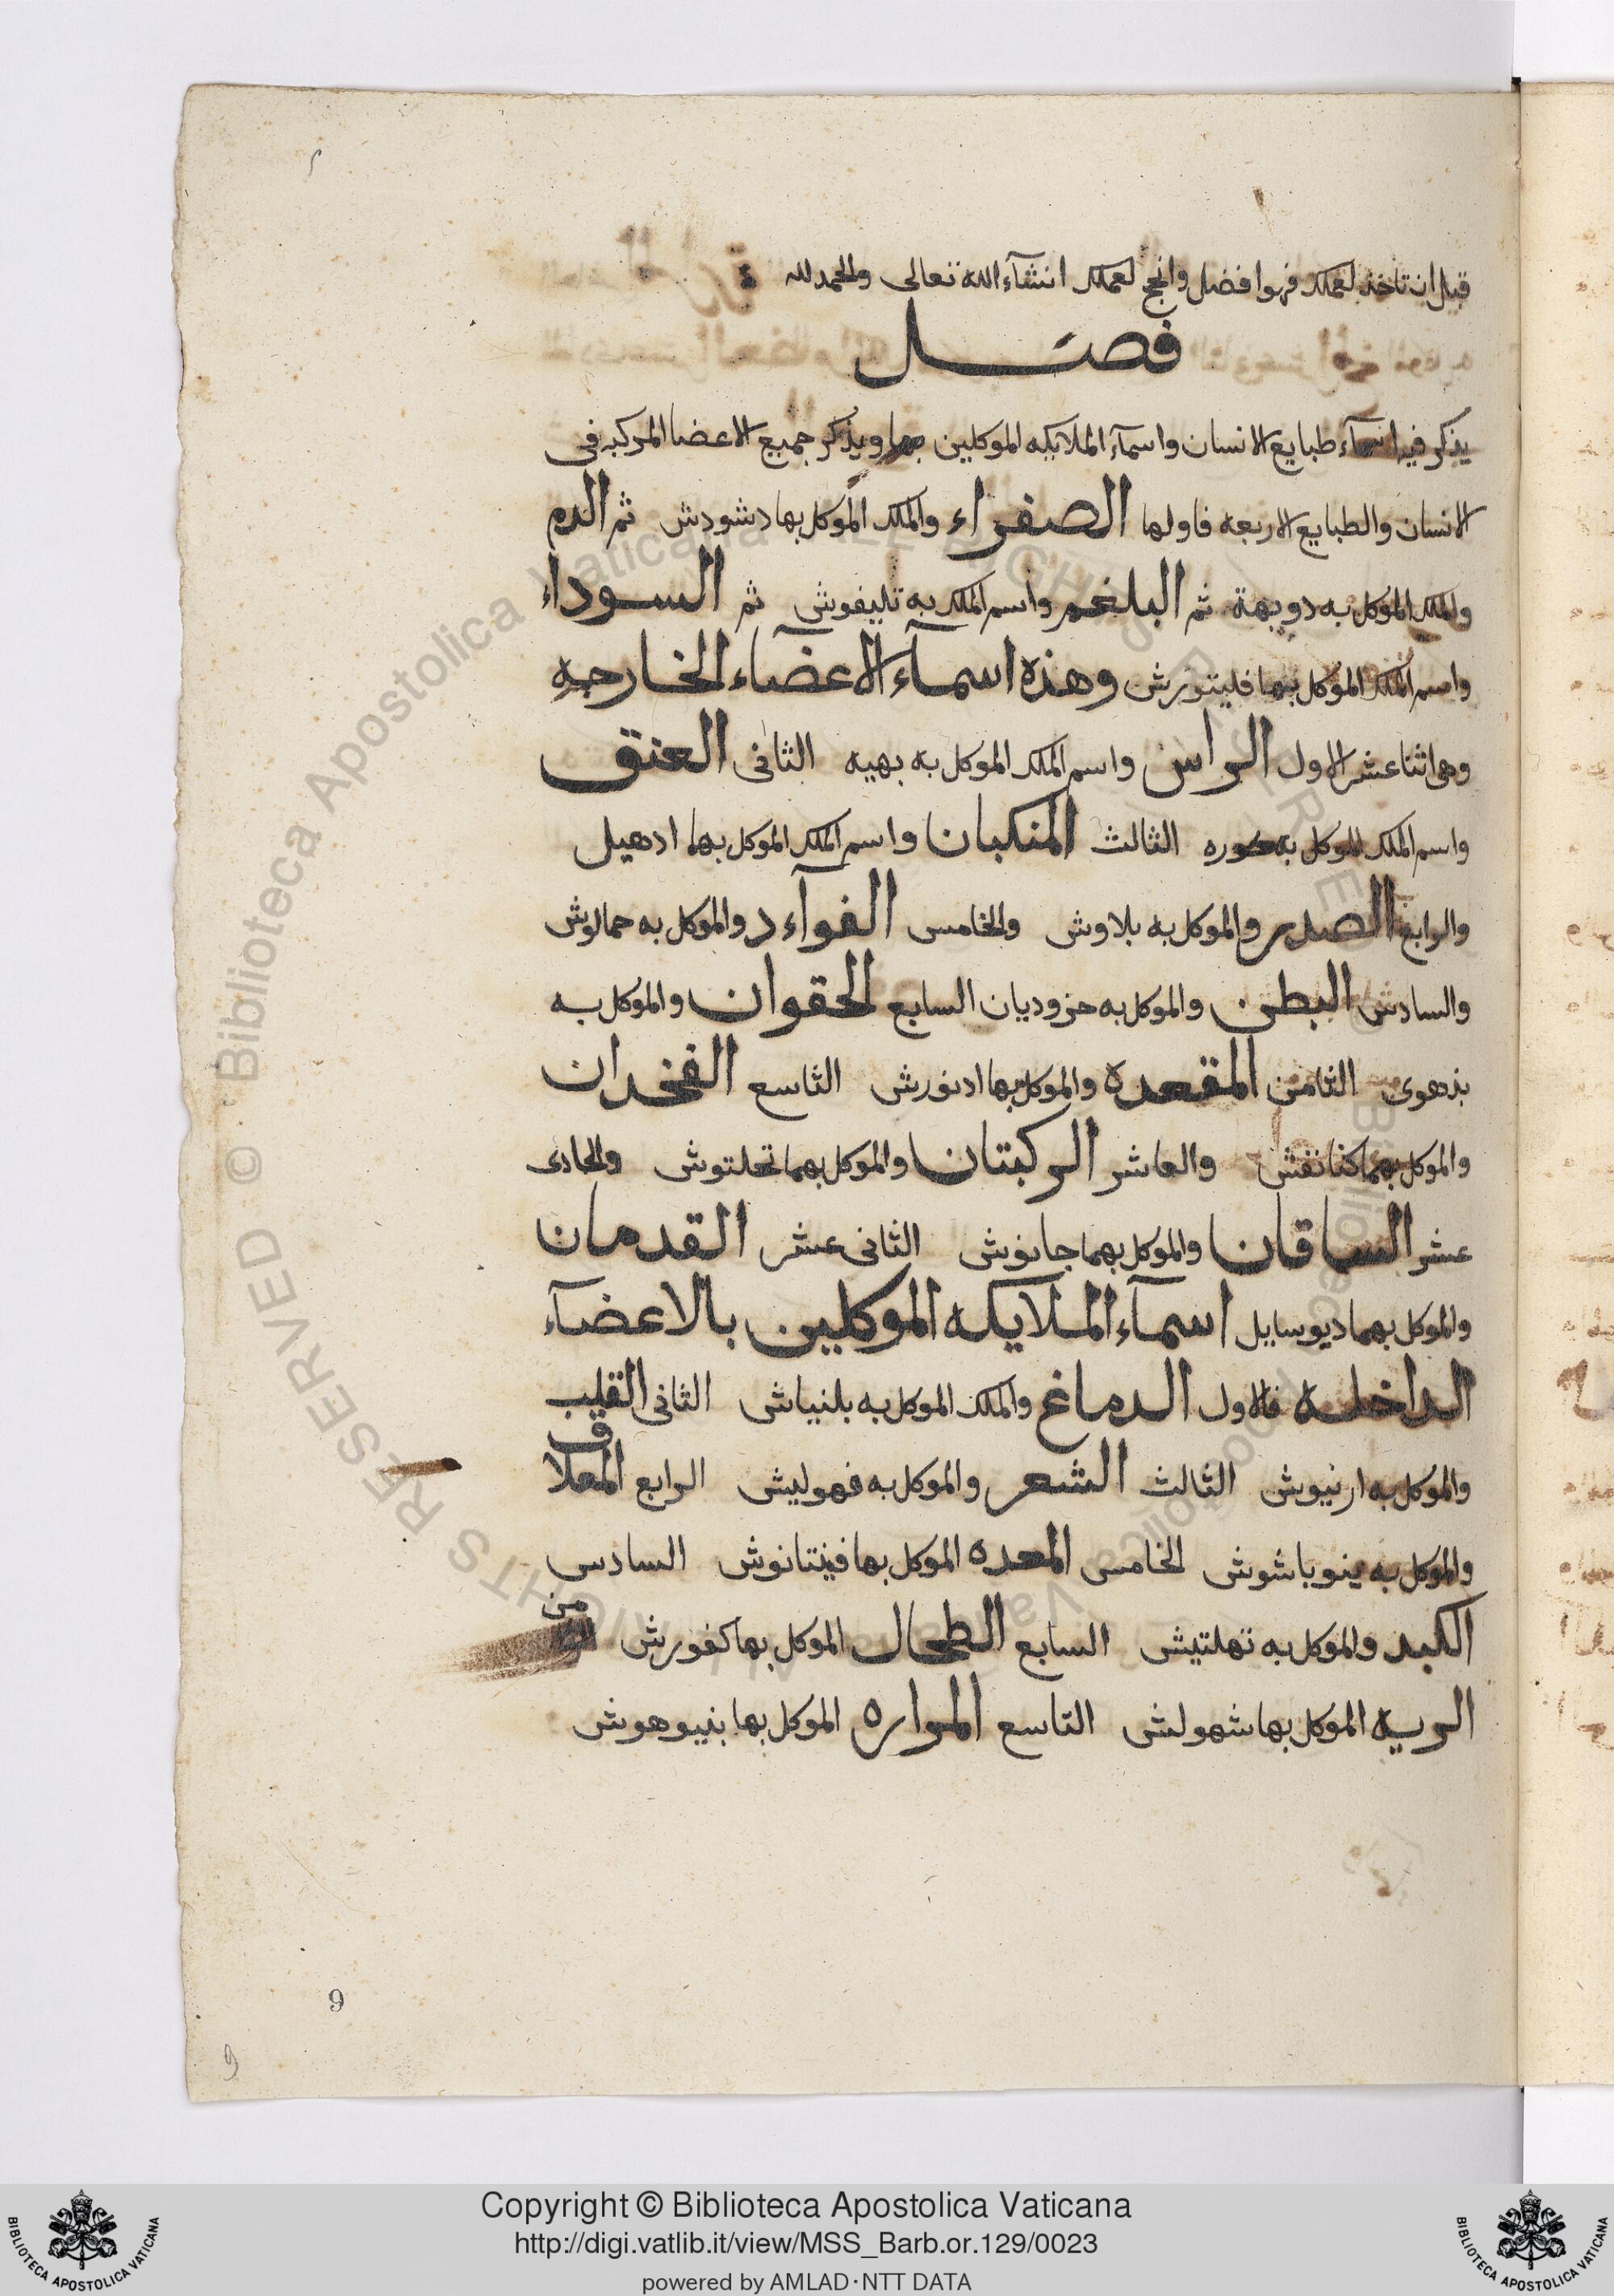 قبل ان تاخذ لعملك فهوا فضل وانجح لعملك انشآء الله تعالى والحمد لله
فصل
يذكر فيه اسمآء طبايع الانسان واسمآء الملايكه الموكلين بها ويذكر جميع الاعضا المركبه فى
الانسان والطبايع الاربعه فاولها الصفراء والملك الموكل بها دشودش ثم الدم
والملك الموكل به دويهة ثم البلغم واسم الملك به تليفوش ثم السوداء
واسم الملك الموكل بها فليتورش وهذه اسمآء الاعضآء الخارجه
وهى اثنا عشر الاول الراس واسم الملك الموكل به بهيه الثانى العنق
واسم الملك الموكل به الثالث المنكبان واسم الملك الموكل بهما ادهيل
والرابع الصدر والموكل به بلاوش والخامس الفوآءد والموكل به حمالوش
والسادس البطن والموكل به حزوديان السابع الحقوان والموكل به
بذهوى الثامن المقعده والموكل بها ادنورش التاسع الفخدان
والموكل بهما كنانقش والعاشر الركبتان والموكل بهما تحلتوش والحادى
عشر الساقان والموكل بهما جانوش الثانى عشر القدمان
والموكل بهما ديوسايل اسمآء الملايكه الموكلين بالاعضآء
الداخله فالاول الدماغ والملك الموكل به بلنياش الثانى القلب
والموكل به ارنيوش الثالث الشعر والموكل به فهوليش الرابع المعلاق
والموكل به ينوباشوش الخامس المعده الموكل بها فينتانوش السادس
الكبد والموكل به تهلتيش السابع الطحال الموكل بها كفورش الثامن
الريه الموكل بها شهولش التاسع المراره الموكل بها بنيوهوش
9
9
© Biblioteca Apostolica Vaticana ALL RIGHTS RESERVED
Copyright © Biblioteca Apostolica Vaticana
http://digi.vatlib.it/view/MSS_Barb.or.129/0023
powered by AMLAD·NTT DATA
BIBLIOTECA APOSTOLICA VATICANA
BIBLIOTECA APOSTOLICA VATICANA